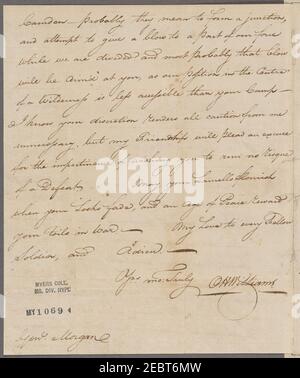 Camden — Probably they mean to form a junction,
and attempt to give a blow to a Part of our force
while we are divided and most probably that blow
will be aimed at you, as our Position in the Centre
of a Wilderness is less accessible than your Camp —
I know your discretion renders all caution from me
unnecessary, but my Friendship will plead an excuse
for the impertinence of wishing you to run no risque
of a Defeat. May your Laurells flourish
when your Locks fade, and an age of Peace reward
your toils in War. My Love to every Fellow
Soldier, and Adieu.
Yrs most Truly O H Williams
MYERS COLL.
MS. DIV. NYPL
MY 1069 4
Genl. Morgan
alamy
Image ID: 2EBT6MW
www.alamy.com